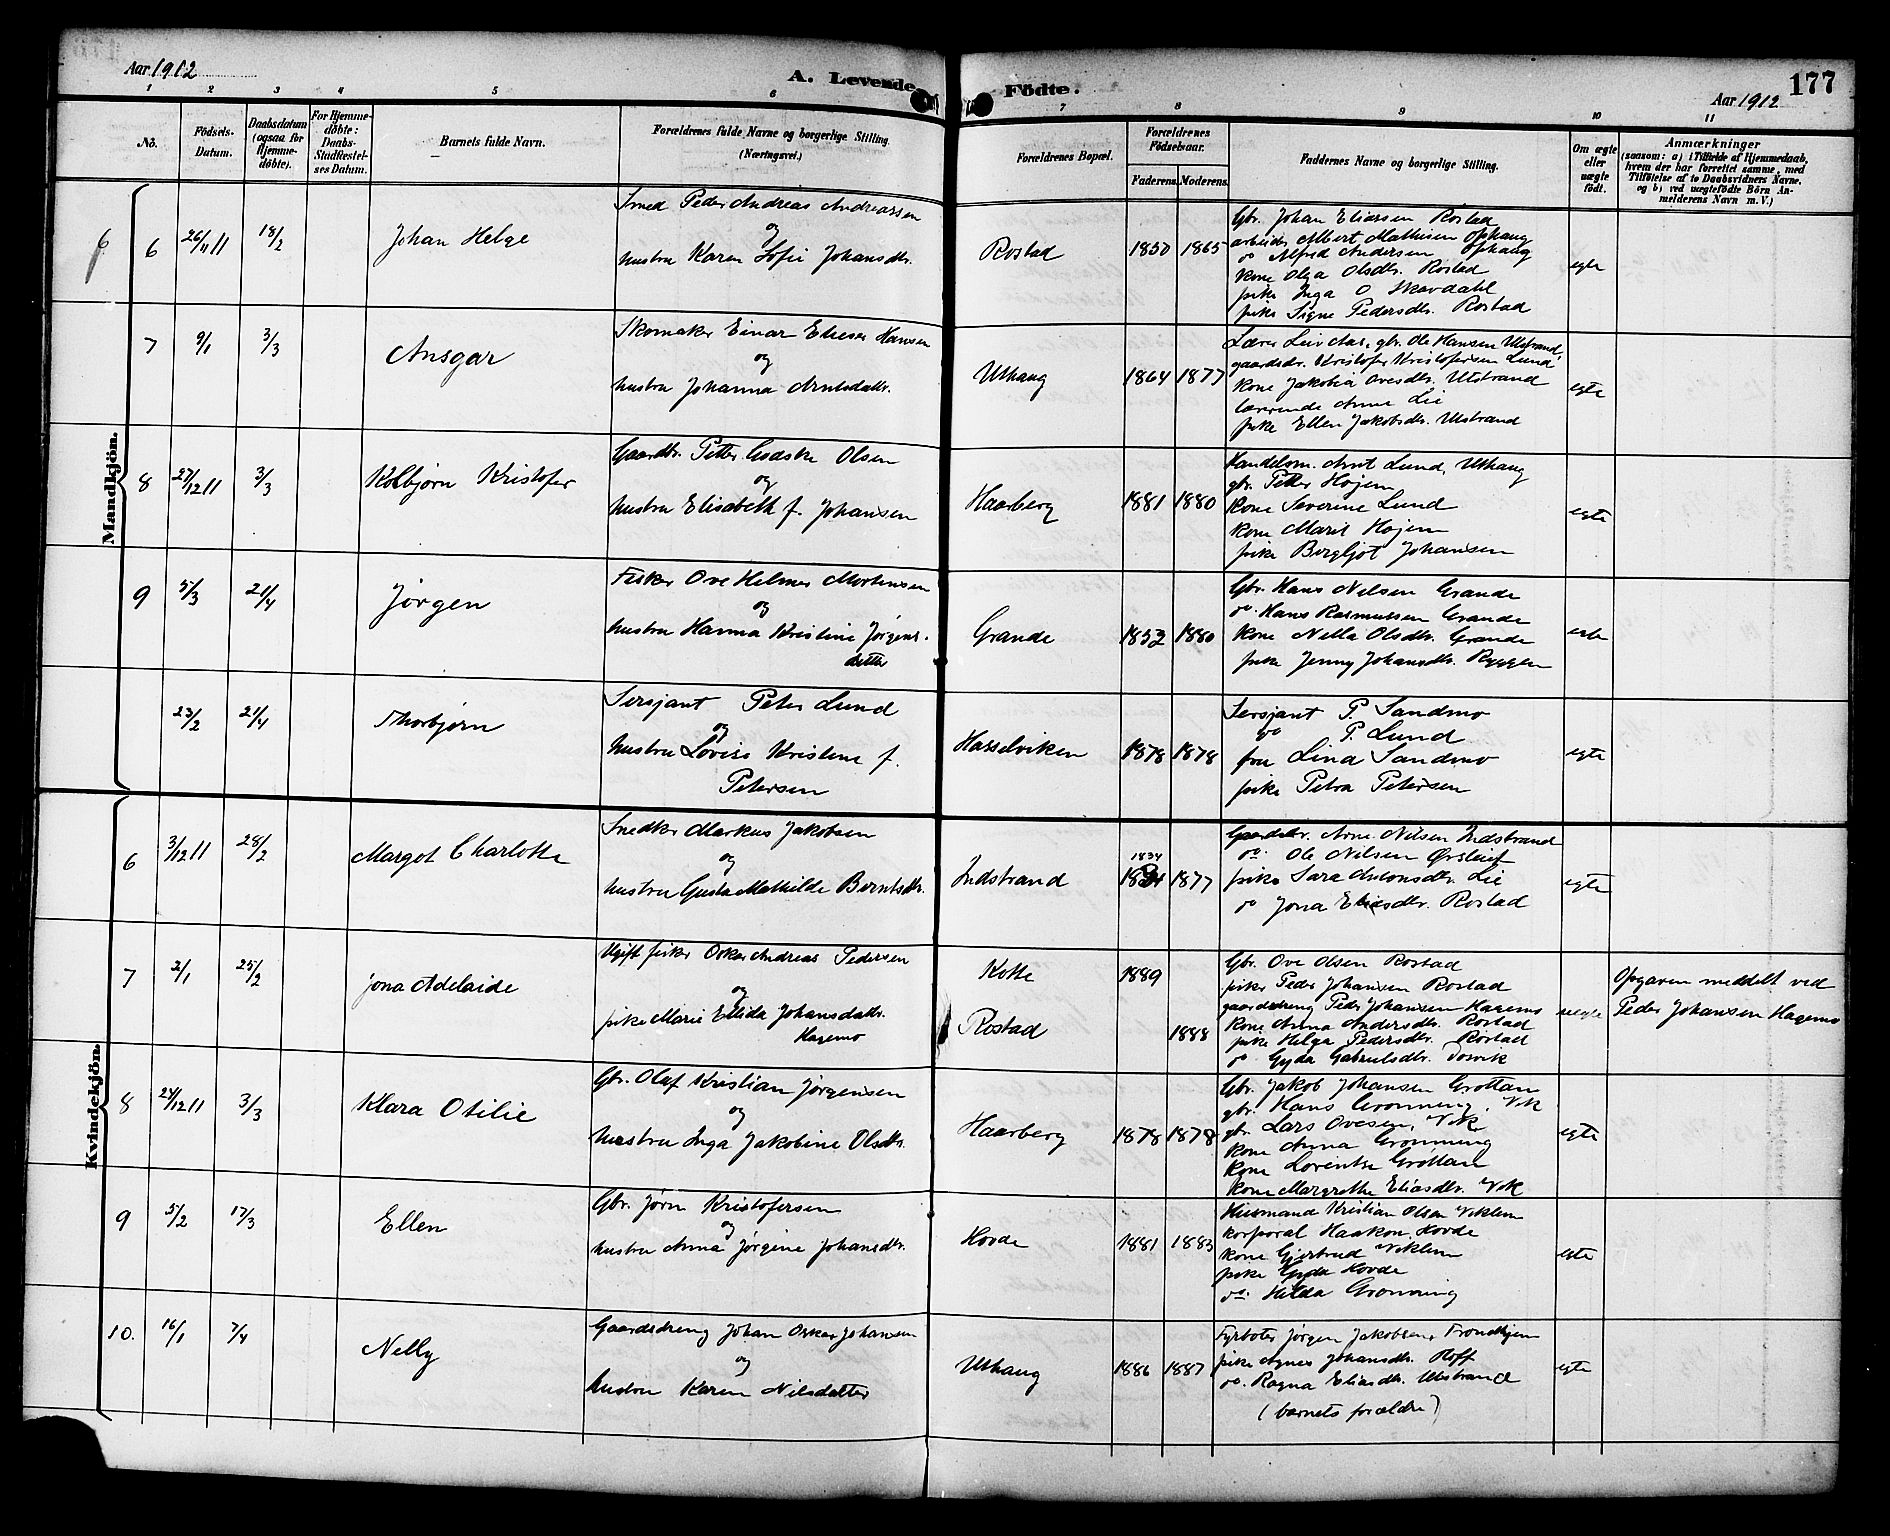 Aar 1912
A. Levende
Födte.
Aar 1912
177
1 2 3 4 5 6 7 8 9 10 11
No.
Födsels-Datum.
Daabsdatum (ogsaa for Hjemme-döbte).
For Hjemme-döbte: Daabs-Stadfæstel-ses Datum.
Barnets fulde Navn.
Forældrenes fulde Navne og borgerlige Stilling. (Næringsvei.)
Forældrenes Bopæl.
Forældrenes Födselsaar.
Faderens. Moderens.
Faddernes Navne og borgerlige Stilling.
Om ægte eller uægte født.
Anmærkninger
(saasom: a) i Tilfælde af Hjemmedaab, hvem der har forrettet samme, med Tilföielse af to Daabsvidners Navne, og b) ved uægtefödte Börn Anmelderens Navn m. V.)
Mandkjön.
6
6 26/11 11 18/2 Johan Helge
Smed Peder Andreas Andreassen
og
hustru Karen Sofie Johansdtr.
Rostad 1850 1865
Gbr. Johan Eliassen Rostad
arbeider Albert Mathisen Ophaug
do Alfred Andersen Ophaug
kone Olga Olsdtr. Rostad
pike Inga O Skavdahl
pike Signe Pedersdtr. Rostad
egte
7 9/1 3/3 Ansgar
Skomaker Einar Elieser Hansen
og
hustru Johanna Arntsdatr.
Uthaug 1864 1877
Lærer Leiv Aas, gbr. Ole Hansen Ulstrand,
gaardbr. Kristofer Kristofersen Lund
kone Jakobia Ovesdtr. Utstrand
lærerinde Anne Lie
pike Ellen Jakobsdtr. Utstrand
egte
8 27/12 11 3/3 Kolbjørn Kristofer
Gaardbr. Petter Godske Olsen
og
hustru Elisabeth f. Johansen
Haarberg 1881 1880
Handelsm. Arnt Lund, Uthaug
gbr. Petter Højem
kone Severine Lund
kone Marit Højem
pike Bergljot Johansen
egte
9 5/3 21/4 Jørgen
Fisker Ove Helmer Mortensen
og
hustru Hanna Kristine Jørgens-
datter
Grande 1852 1880
Gbr. Hans Nilsen Grande
do. Hans Rasmussen Grande
kone Nella Olsdtr. Grande
pike Jenny Johansdtr. Ryggen
egte
23/2 21/4 Thorbjørn
Sersjant Peter Lund
og
hustru Lovise Kristine f.
Petersen
Hasselviken 1878 1878
Sersjant P. Sandmo
do P. Lund
fru Lina Sandmo
pike Petra Petersen
egte
Kvindekjön.
6 3/12 11 28/2 Margot Charlotte
Snedker Markus Jakobsen
og
hustru Gusta Mathilde Berntsdtr.
Indstrand 1834 1877
Gaardbr. Arne Nilsen Indstrand
do. Ole Nilsen Ørsleit
pike Sara Antonsdtr. Lie
do Jona Eliasdtr. Rostad
egte
7 2/1 25/2 Jona Adelaide
Ugift fisker Oskar Andreas Pedersen
og
pike Marie Elida Johansdatr.
Hagemo
Kotte 1889
Rostad 1888
Gbr. Ove Olsen Rostad
fisker Peder Johansen Rostad
gaardsdreng Peder Johansen Hagemo
kone Anna Andersdtr. Rostad
pike Helga Pedersdtr. Rostad
do. Gyda Gabrielsdtr.
uegte
Opgaven meddelt ved
Peder Johansen Hagemo
8 24/12 11 3/3 Klara Otilie
Gbr. Olaf Kristian Jørgensen
og
hustru Inga Jakobine Olsdtr.
Haarberg 1878 1878
Gbr. Jakob Johansen Grøttan
gbr. Hans Grønning, Vik
gbr. Lars Ovesen, Vik
kone Anna Grønning
kone Lorentse Grøttan
kone Margrethe Eliasdtr. Vik
egte
9 5/2 17/3 Ellen
Gbr. Jørn Kristofersen
og
hustru Anna Jørgine Johansdtr.
Hovde 1881 1883
Husmand Kristian Olsen Viklem
korporal Haakon Hovde
kone Gjertrud Viklem
pike Gyda Hovde
do. Hilda Grønning
egte
10. 16/1 7/4 Nelly
Gaardsdreng Johan Oskar Johansen
og
hustru Karen Nilsdatter
Uthaug 1886 1887
Fyrbøter Jørgen Jakobsen, Trondhjem
pike Agnes Johansdtr. Hoff
do. Ragna Eliasdtr. Utstrand
(barnets forældre)
egte